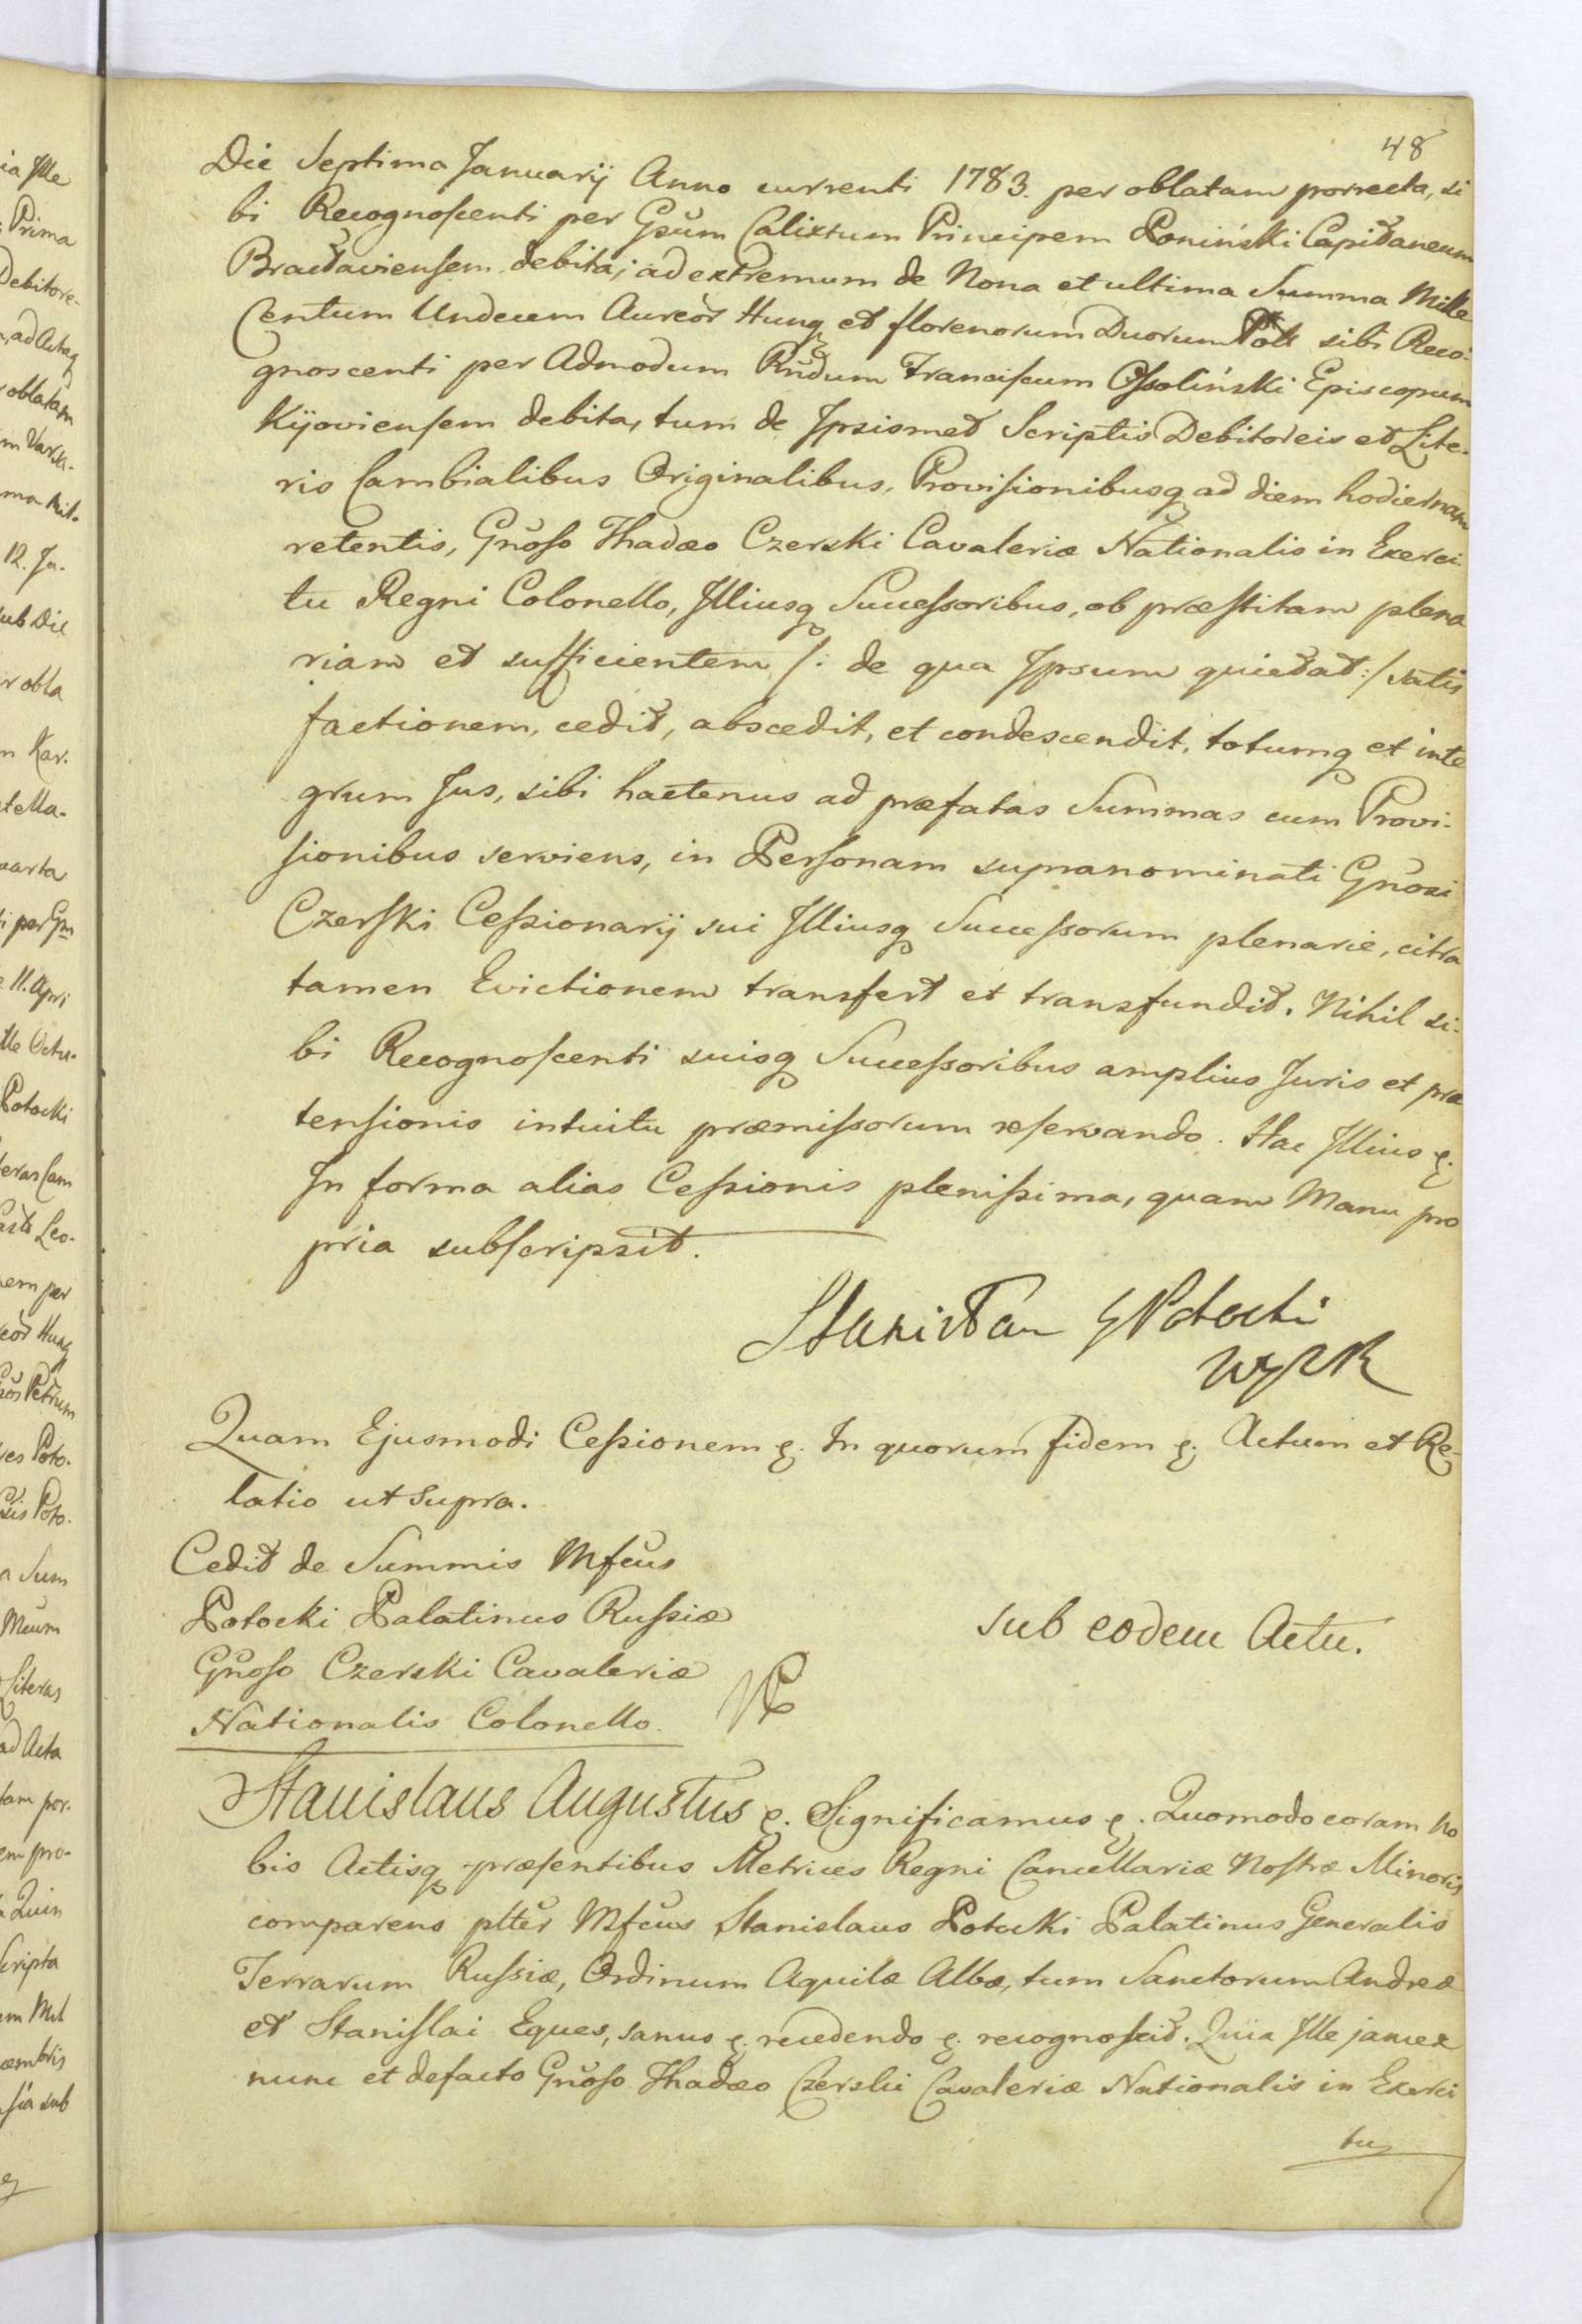 48
Die Septima Januarij Anno currenti 1783. per oblatam porrecta, si
bi Recognoscenti per Gsum Calixtum Principem Poniński Capitaneum
Bracłaviensem debita; ad extremum de Nona et ultima Summa Mille
Centum Undecem Aureor Hung et florenorum Duorum Poll sibi Reco-
gnoscenti per Admodum Rndum Franciscum Ossoliński Episcopum
Kijoviensem debita, tum de Ipsismet Scriptis Debitoreis et Lite-
ris Cambialibus Originalibus, Provisionibusq ad diem hodiernam
retentis, Gnoso Thadæo Czerski Cavaleriæ Nationalis in Exerci
tu Regni Colonello, Illiusq Successoribus, ob præstitam plena
riam et sufficientem /: de qua Ipsum quietat :/ satis
factionem, cedit, abscedit, et condescendit, totumq et inte
grum Jus, sibi hactenus ad præfatas Summas cum Provi-
sionibus serviens, in Personam supranominati Gnosi
Czerski Cessionarij sui Illiusq Successorum plenarie, citra
tamen Evictionem transfert et transfundit. Nihil si-
bi Recognoscenti suisq Successoribus amplius Juris et præ
tensionis intuitu præmissorum reservando. Hac Illius &.
In forma alias Cessionis plenissima, quam Manu pro
pria subscripsit.
Stanisław Potocki
WZR
Quam Ejusmodi Cessionem &. In quorum fidem &. Actum et Re-
latio ut supra.
Cedit de Summis Mfcus
Potocki Palatinus Russiæ
Gnoso Czerski Cavaleriæ
Nationalis Colonello.
sub eodem Actu.
Stanislaus Augustus &. Significamus &. Quomodo coram No
bis Actisq præsentibus Metrices Regni Cancellariæ Nostræ Minoris
comparens plter Mfcus Stanislaus Potocki Palatinus Generalis
Terrarum Russiæ, Ordinum Aquilæ Albæ, tum Sanctorum Andreæ
et Stanislai Eques, sanus &. recedendo &. recognoscit. Quia Ille jam ex
nunc et defacto Gnoso Thadæo Czerski Cavaleriæ Nationalis in Exerci
tu